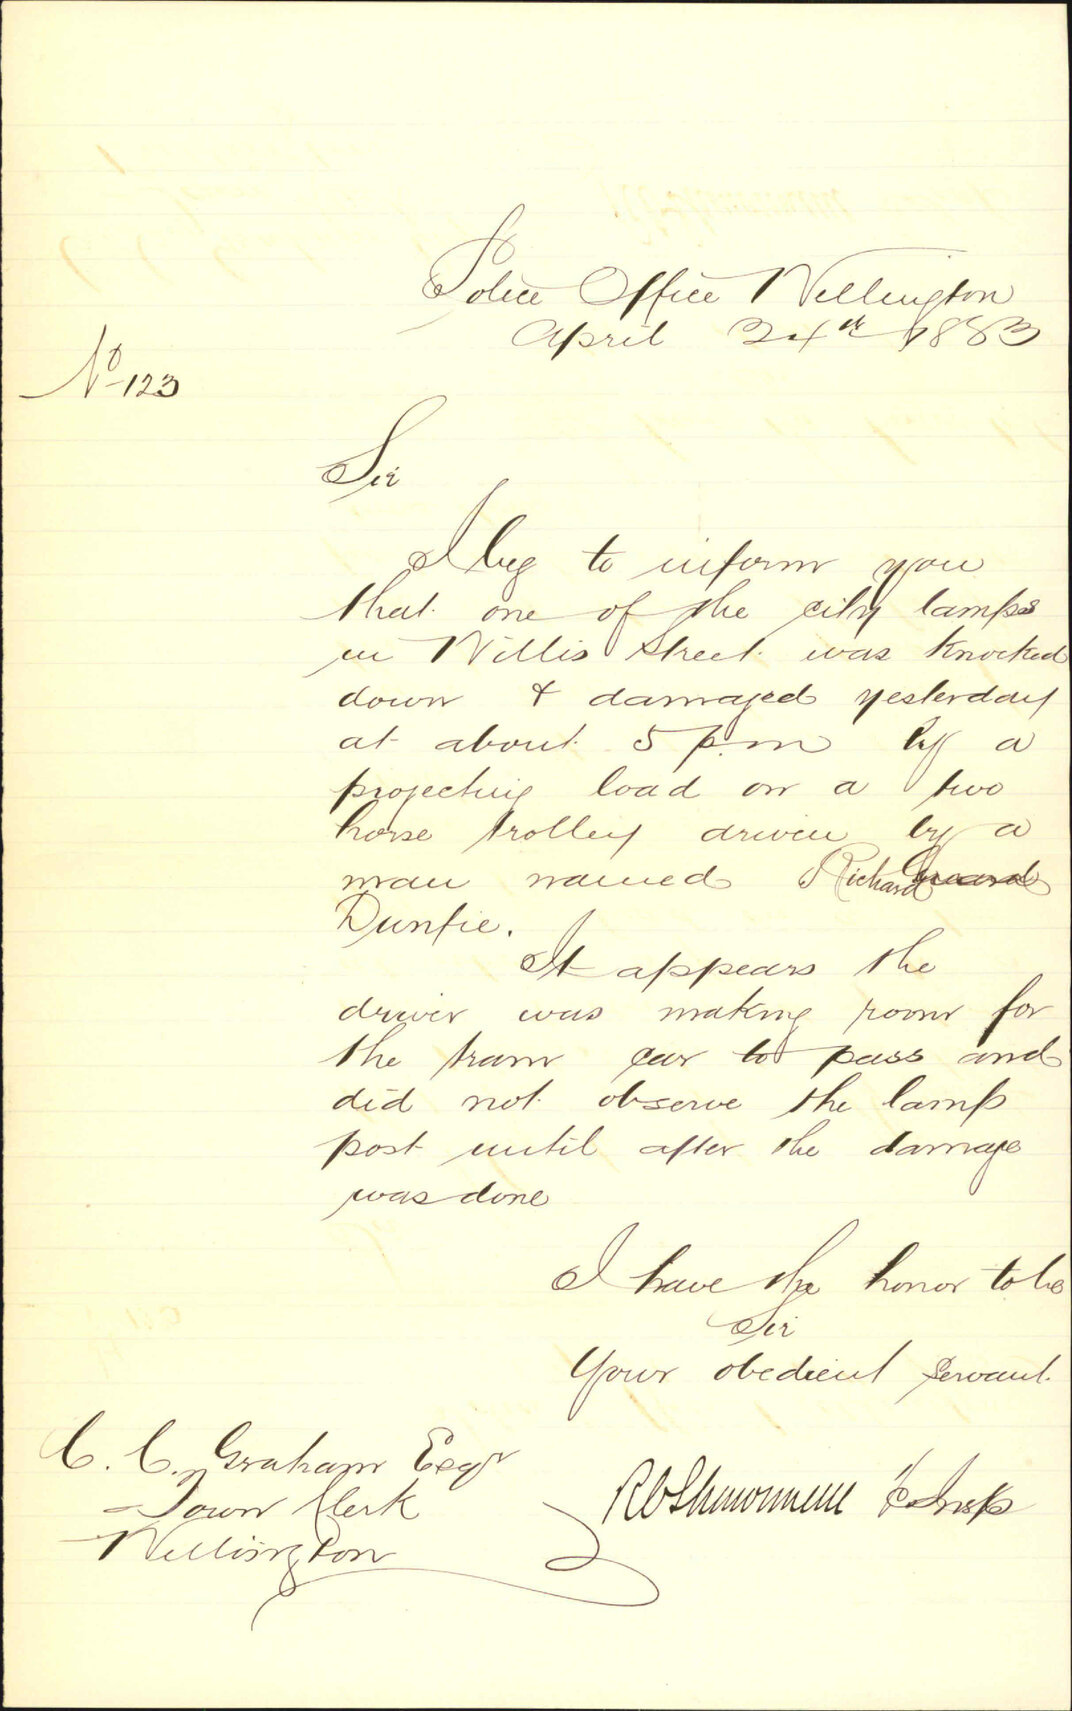 Police Office Wellington
April 24th 1883
No 123
Sir
I beg to inform you
that one of the city lamps
in Willis Street was Knocked
down & damaged yesterday
at about 5 p.m by a
projecting load on a two
horse trolley driven by a
man named Richard
Dunfie.
It appears the
driver was making room for
the tram car to pass and
did not observe the lamp
post until after the damage
was done
I have the honor to be
Sir
Your obedient Servant
C. C. Graham Esqr
Town Clerk
Wellington
Insp